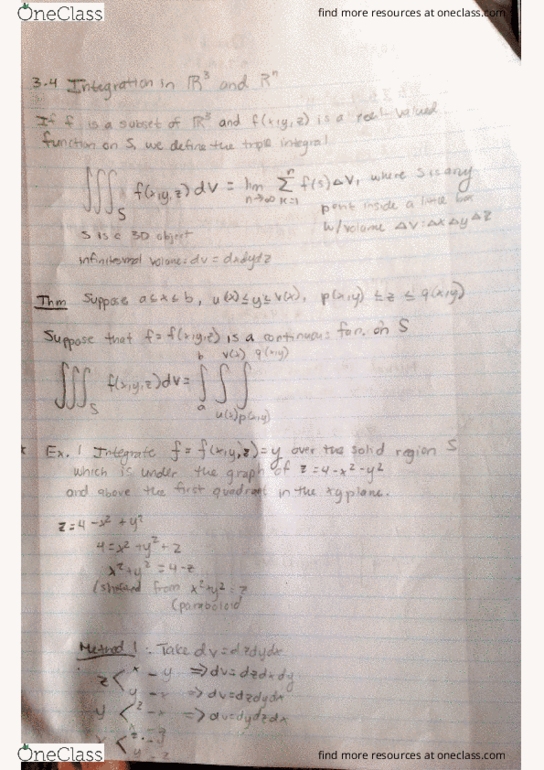 OneClass
find more resources at oneclass.com
3.4 Integration in ℝ³ and ℝⁿ
If f is a subset of ℝ³ and f(x,y,z) is a real-valued
function on S, we define the triple integral
∭_S f(x,y,z) dV = lim_{n→∞} Σ_{k=1}^{n} f(s)ΔV, where S is any
point inside a little box
w/volume ΔV=ΔxΔyΔz
S is a 3D object
infinitesimal volume: dv = dxdydz
Thm Suppose a≤x≤b, u(x)≤y≤v(x), p(x,y) ≤z≤ q(x,y)
Suppose that f=f(x,y,z) is a continuous fcn. on S
∭_S f(x,y,z)dv = ∫_a^b ∫_{u(x)}^{v(x)} ∫_{p(x,y)}^{q(x,y)}
Ex. 1 Integrate f=f(x,y,z)=y over the solid region S
which is under the graph of z=4-x²-y²
and above the first quadrant in the xy plane.
z=4-x²+y²
4=x²+y²+z
x²+y²=4-z
from x²+y²=z
(paraboloid
Method 1: Take dv=dzdydx
z < x - y => dv=dzdxdy
y - x => dv=dzdydx
y < z - x => dv=dydzdx
OneClass
find more resources at oneclass.com